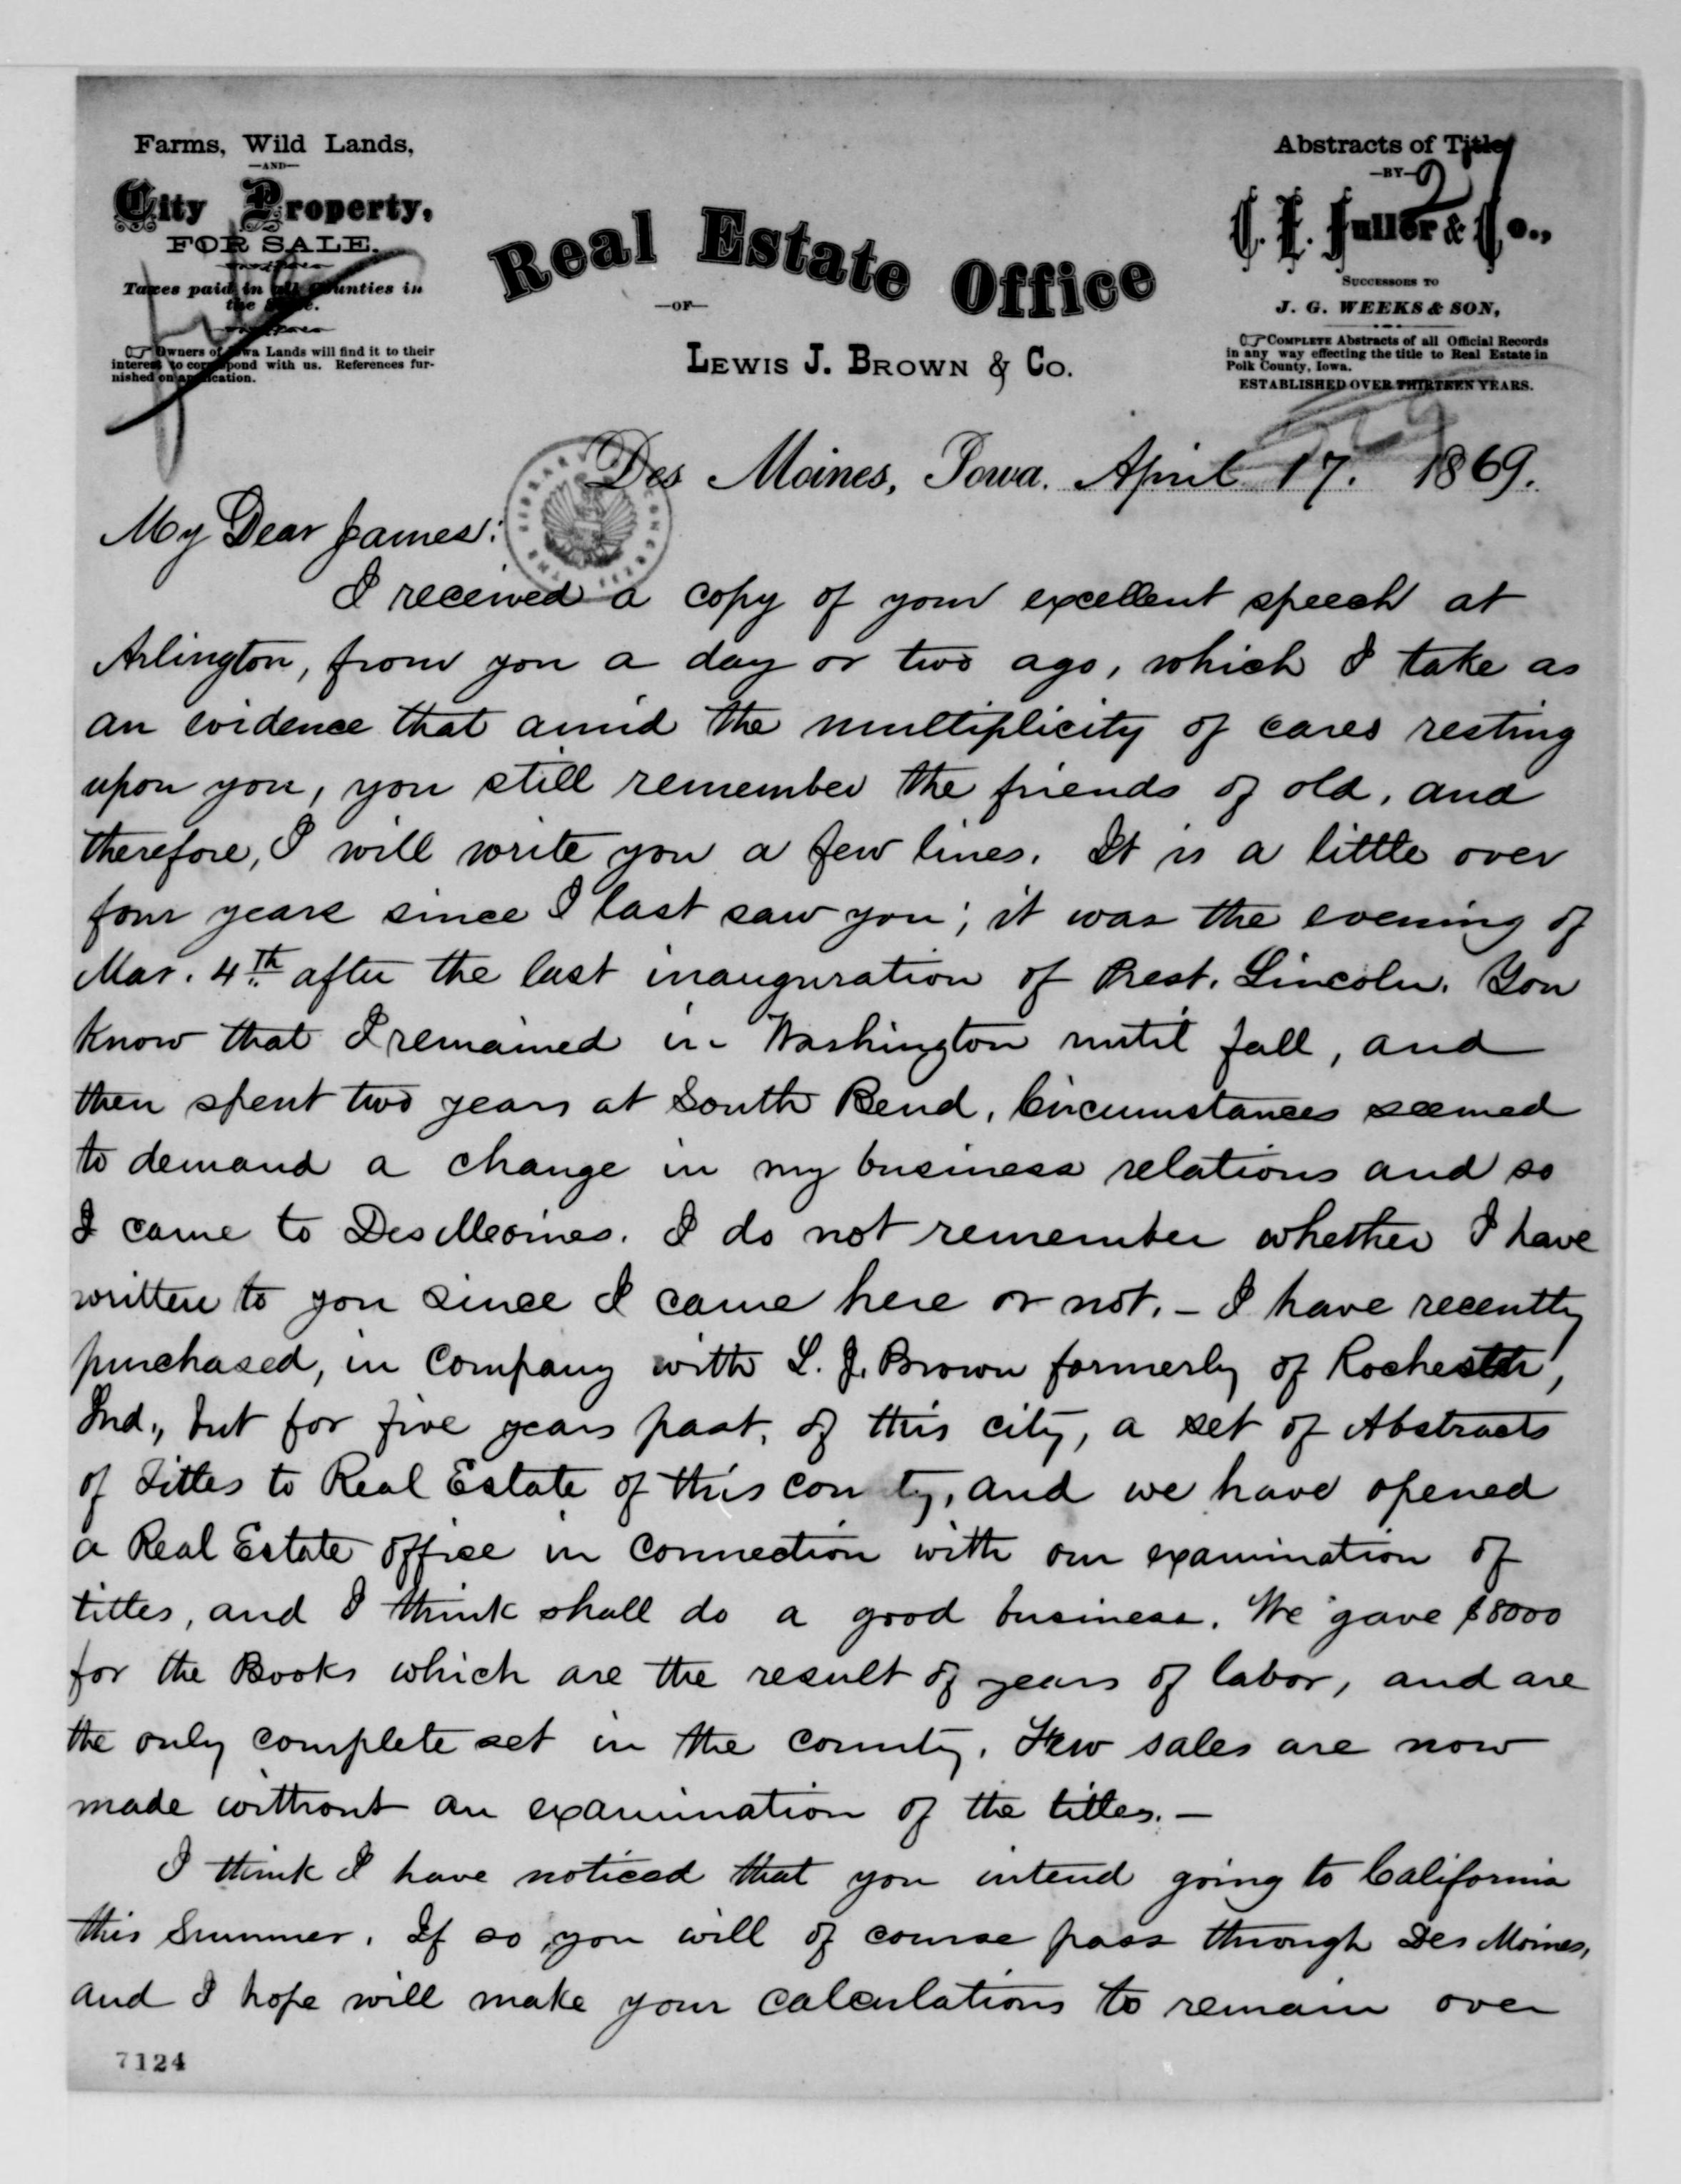 Farms, Wild Lands,
—AND—
City Property,
FOR SALE.
Taxes paid in all Counties in
the
Owners of Iowa Lands will find it to their
interest to correspond with us. References fur-
nished on application.
Real Estate Office
—OF—
LEWIS J. BROWN & CO.
Abstracts of Title
—BY—
27
Fuller & Co.,
SUCCESSORS TO
J. G. WEEKS & SON,
COMPLETE Abstracts of all Official Records
in any way effecting the title to Real Estate in
Polk County, Iowa.
ESTABLISHED OVER THIRTEEN YEARS.
Des Moines, Iowa. April 17. 1869.
My Dear James:
I received a copy of your excellent speech at
Arlington, from you a day or two ago, which I take as
an evidence that amid the multiplicity of cares resting
upon you, you still remember the friends of old, and
therefore, I will write you a few lines. It is a little over
four years since I last saw you; it was the evening of
Mar. 4th after the last inauguration of Prest. Lincoln. You
know that I remained in Washington until fall, and
then spent two years at South Bend. Circumstances seemed
to demand a change in my business relations and so
I came to Des Moines. I do not remember whether I have
written to you since I came here or not. – I have recently
purchased, in company with L. J. Brown formerly of Rochester,
Ind., but for five years past, of this city, a set of Abstracts
of Titles to Real Estate of this county, and we have opened
a Real Estate office in connection with our examination of
titles, and I think shall do a good business. We gave $8000
for the Books which are the result of years of labor, and are
the only complete set in the county. Few sales are now
made without an examination of the titles. –
I think I have noticed that you intend going to California
this Summer. If so, you will of course pass through Des Moines,
and I hope will make your calculations to remain over
7124